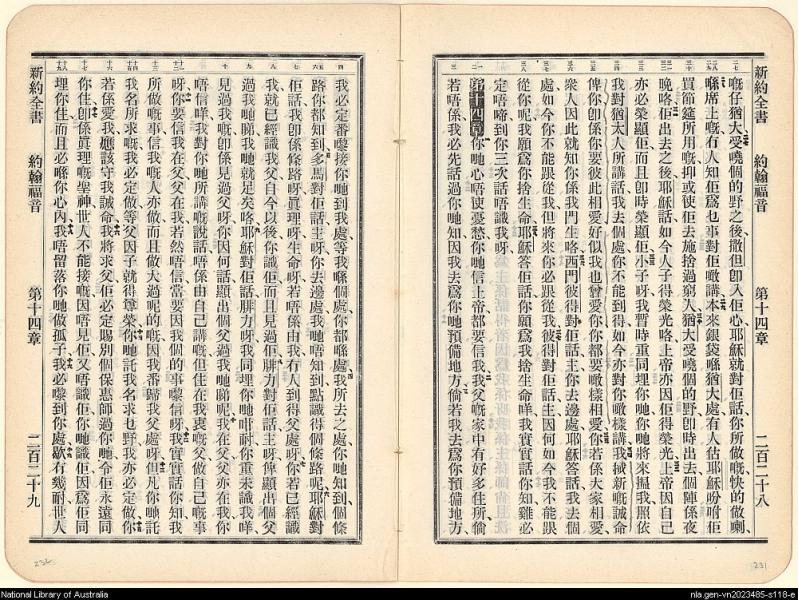 新約全書 約翰福音 第十四章 二百二十八
嘅仔猶大受曉個的野之後撒但卽入佢心耶穌就對佢話你所做嘅快的做喇
喺席上嘅有人知佢爲乜事對佢噉講本來銀袋喺猶大處有人估耶穌吩咐佢
買節筵所用嘅抑或使佢去施捨過窮人猶大受曉個的野卽時出去個陣係夜
晚咯佢出去之後耶穌話如今人子得榮光咯上帝亦因佢得榮光上帝因自己
亦必榮顯佢而且卽時榮顯佢小子呀我暫時重同埋你哋你哋將來搵我照依
我對猶太人所講話我去個處你不能到得如今亦對你噉樣講我𢬿新嘅誡命
俾你卽係你要彼此相愛好似我也曾愛你你都要噉樣相愛你若係大家相愛
衆人因此就知你係我門生咯西門彼得對佢話主你去邊處耶穌答話我去個
處如今你不能跟從我但將來你必跟從我彼得對佢話主因何如今我不能跟
從你呢我願爲你捨生命耶穌答佢話你願爲我捨生命咩我實實話你知雞必
定唔啼到你三次話唔識我呀
第十四章 你哋心唔使憂愁你哋信上帝都要信我我父嘅家中有好多住所倘
若唔係我必先話過你哋知因我去爲你哋預備地方倘若我去爲你預備地方
我必定番嚟接你哋到我處等我喺個處你都喺處我所去之處你哋知到個條
路你都知到多馬對佢話主呀你去邊處我哋唔知到點識得個條路呢耶穌對
佢話我卽係條路呀眞理呀生命呀若唔係由我有人到得父處呀你若已經識
我就已經識我父自今以後你識佢而且見過佢腓力對佢話主呀俾顯出個父
過我哋睇我哋就足矣咯耶穌對佢話腓力呀我同埋你哋咁耐你重未識我咩
見過我嘅卽係見過父呀你因何話顯出個父過我哋睇呢我在父父亦在我你
唔信咩我對你哋所講嘅說話唔係由自己講嘅但住在我裏嘅父做自己嘅事
呀你要信我在父父在我若然唔信當要因我個的事嚟信呀我實實話你知我
所做嘅事信我嘅人亦做而且做大過呢的嘅因我番歸我父處呀但凡你哋託
我名所求嘅我必定做等父因子就得尊榮你哋託我名求乜野我亦必定做你
若係愛我應該守我誡命我將求父佢必定賜別個保惠師過你哋令佢永遠同
你住卽係眞理嘅聖神世人不能接嘅因唔見佢又唔識佢你哋識佢因爲佢同
埋你住而且必喺你心內我唔留落你哋做孤子我必嚟到你處歇有幾耐世人
新約全書 約翰福音 第十四章 二百二十九
232
231
National Library of Australia
nla.gen-vn2023485-s118-e